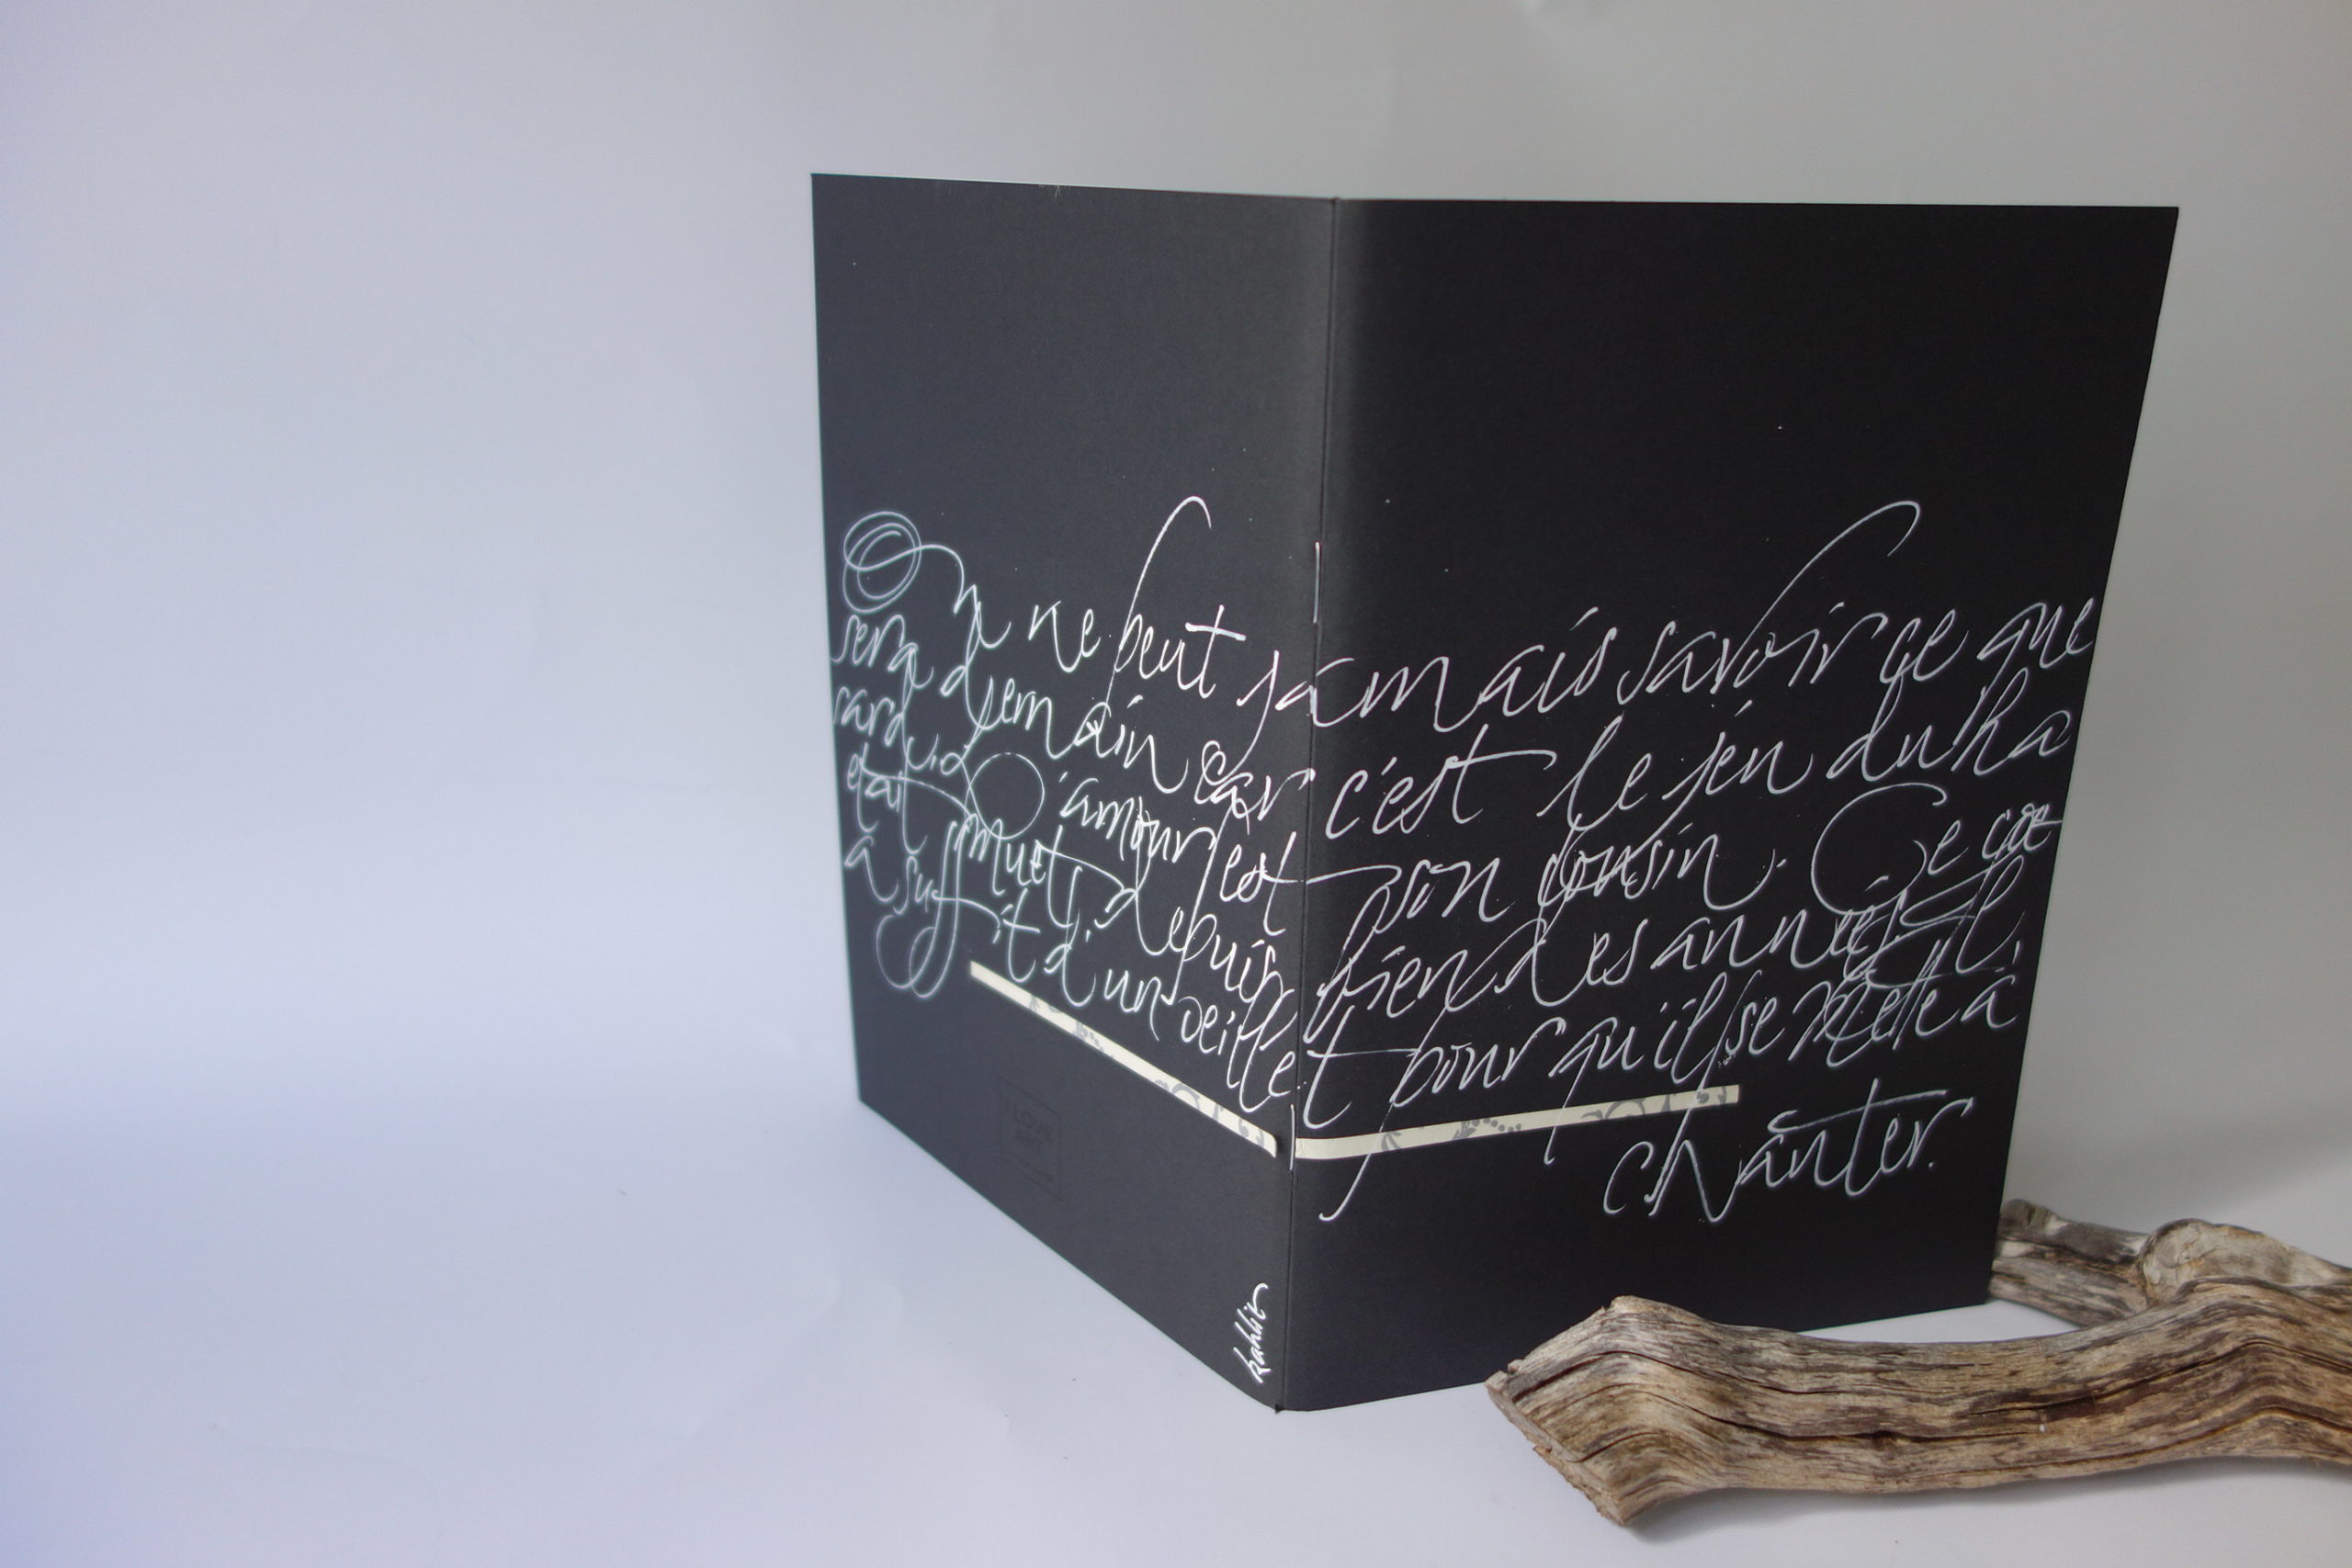 On ne peut jamais savoir ce que
sera demain car c'est le jeu du ha
sard, d l'amour est son cousin. Ce cœ
était muet depuis bien des années Il
a suffit d'un œillet pour qu'il se mette à
chanter.
I LOVE
ART
kahhit